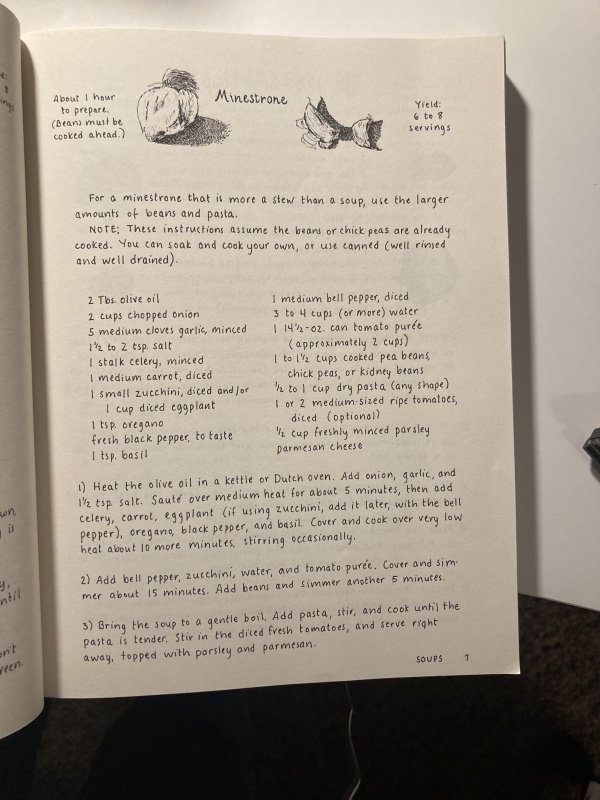 About 1 hour
to prepare.
(Beans must be
cooked ahead.)
Minestrone
Yield:
6 to 8
servings
For a minestrone that is more a stew than a soup, use the larger
amounts of beans and pasta.
NOTE: These instructions assume the beans or chick peas are already
cooked. You can soak and cook your own, or use canned (well rinsed
and well drained).
2 Tbs. olive oil
2 cups chopped onion
5 medium cloves garlic, minced
1½ to 2 tsp. salt
1 stalk celery, minced
1 medium carrot, diced
1 small zucchini, diced and/or
1 cup diced eggplant
1 tsp. oregano
fresh black pepper, to taste
1 tsp. basil
1 medium bell pepper, diced
3 to 4 cups (or more) water
1 14½-oz. can tomato purée
(approximately 2 cups)
1 to 1½ cups cooked pea beans,
chick peas, or kidney beans
½ to 1 cup dry pasta (any shape)
1 or 2 medium-sized ripe tomatoes,
diced (optional)
½ cup freshly minced parsley
parmesan cheese
1) Heat the olive oil in a kettle or Dutch oven. Add onion, garlic, and
1½ tsp. salt. Sauté over medium heat for about 5 minutes, then add
celery, carrot, eggplant (if using zucchini, add it later, with the bell
pepper), oregano, black pepper, and basil. Cover and cook over very low
heat about 10 more minutes, stirring occasionally.
2) Add bell pepper, zucchini, water, and tomato purée. Cover and sim-
mer about 15 minutes. Add beans and simmer another 5 minutes.
3) Bring the soup to a gentle boil. Add pasta, stir, and cook until the
pasta is tender. Stir in the diced fresh tomatoes, and serve right
away, topped with parsley and parmesan.
SOUPS 7